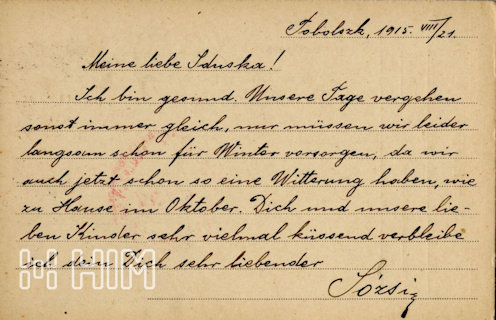 Tobolszk, 1915. VIII/21.
Meine liebe Iduska!
Ich bin gesund. Unsere Tage vergehen
sonst immer gleich, nur müssen wir leider
langsam schon für Winter vorsorgen, da wir
auch jetzt schon so eine Witterung haben, wie
zu Hause im Oktober. Dich und unsere lie-
ben Kinder sehr vielmal küssend verbleibe
ich dein Dich sehr liebender
Józsi
HIM